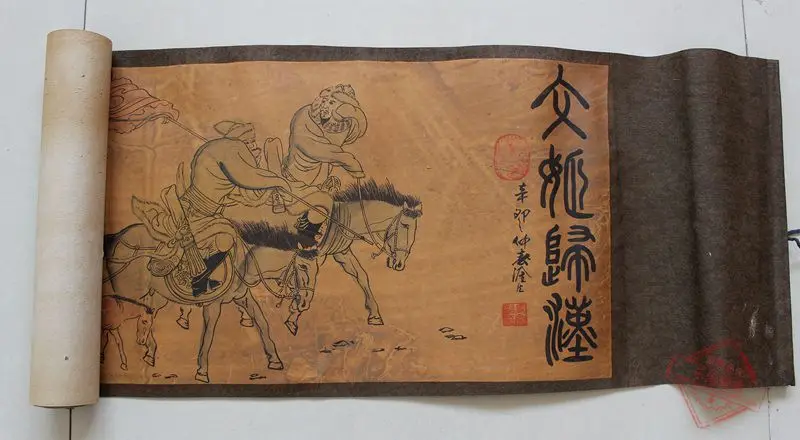 文姬歸漢
辛卯仲春